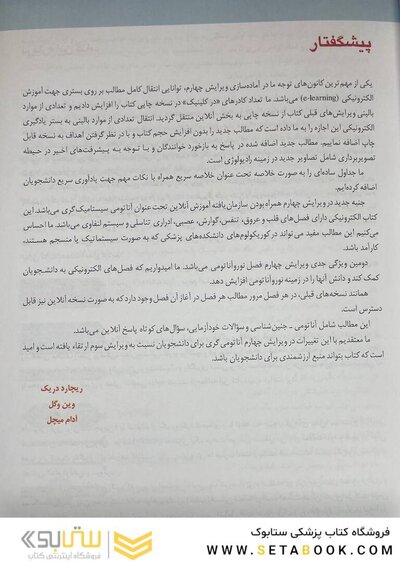 پیشگفتار
یکی از مهم‌ترین کانون‌های توجه ما در آماده‌سازی ویرایش چهارم، توانایی انتقال کامل مطالب بر روی بستری جهت آموزش
الکترونیکی (e-learning) می‌باشد. ما تعداد کادرهای «در کلینیک» در نسخه چاپی کتاب را افزایش دادیم و تعدادی از موارد
بالینی ویرایش‌های قبلی کتاب از نسخه چاپی به بخش آنلاین منتقل گردید. انتقال تعدادی از موارد بالینی به بستر یادگیری
الکترونیکی این اجازه را به ما داده است که مطالب جدید را بدون افزایش حجم کتاب و با در نظر گرفتن اهداف به نسخه قابل
چاپ اضافه نماییم. مطالب جدید اضافه شده در پاسخ به بازخورد خوانندگان و با توجه به پیشرفت‌های اخیر در حیطه
تصویربرداری شامل تصاویر جدید در زمینه رادیولوژی است.
ما جداول ساده‌ای را به صورت خلاصه تحت عنوان خلاصه سریع همراه با نکات مهم جهت یادآوری سریع دانشجویان
اضافه کرده‌ایم.
جنبه جدید در ویرایش چهارم همراه بودن سازمان‌یافته آموزش آنلاین تحت عنوان آناتومی سیستماتیک گری می‌باشد. این
کتاب الکترونیکی دارای فصل‌های قلب و عروق، تنفس، گوارش، عصبی، ادراری تناسلی و سیستم لنفاوی می‌باشد. ما احساس
می‌کنیم این مطالب مفید می‌تواند در کوریکولوم‌های دانشکده‌های پزشکی که به صورت سیستماتیک یا منسجم هستند،
کارآمد باشد.
دومین ویژگی جدی ویرایش چهارم فصل نوروآناتومی می‌باشد. ما امیدواریم که فصل‌های الکترونیکی به دانشجویان
کمک کند و دانش آنها را در زمینه نوروآناتومی افزایش دهد.
همانند نسخه‌های قبلی، در هر فصل مرور مطالب هر فصل در آغاز آن فصل وجود دارد که به صورت نسخه آنلاین نیز قابل
دسترس است.
این مطالب شامل آناتومی ـ جنین‌شناسی و سؤالات خودآزمایی، سؤال‌های کوتاه پاسخ آنلاین می‌باشد.
ما معتقدیم با این تغییرات در ویرایش چهارم آناتومی گری برای دانشجویان نسبت به ویرایش سوم ارتقاء یافته است و امید
است که کتاب بتواند منبع ارزشمندی برای دانشجویان باشد.
ریچارد دریک
وین وگل
آدام میچل
فروشگاه کتاب پزشکی ستابوک
WWW.SETABOOK.COM
ستابوک
فروشگاه اینترنتی کتاب